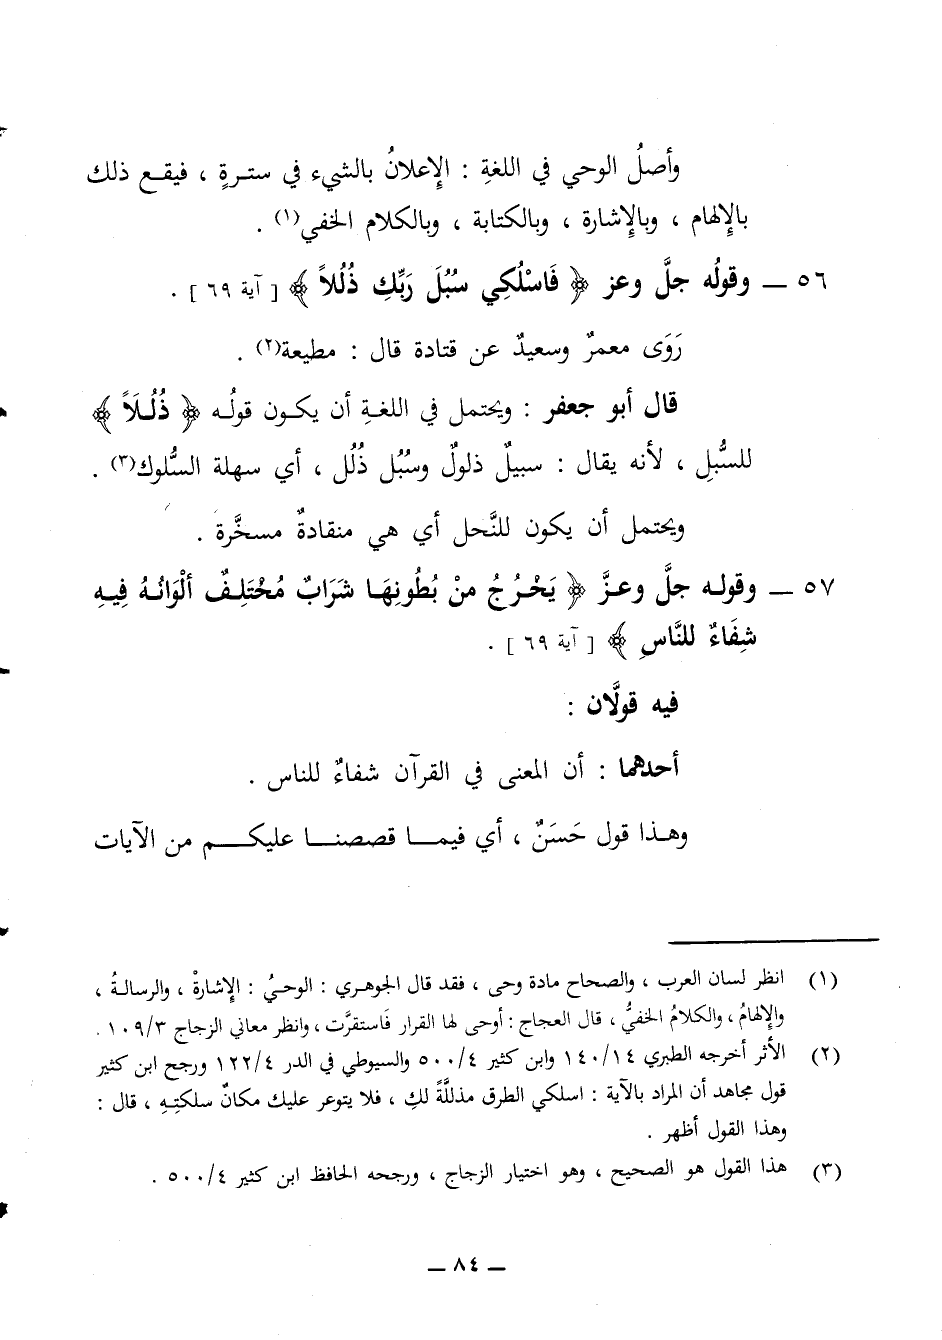 وأصلُ الوحي في اللغةِ : الإعلانُ بالشيء في سترةٍ ، فيقـع ذلك
بالإلهام ، وبالإشارة ، وبالكتابة ، وبالكلام الخفي(١) .
٥٦ ــ وقولُه جلَّ وعز ﴿ فَاسْلُكِي سُبُلَ رَبِّكِ ذُلُلاً ﴾ [ آية ٦٩ ] .
رَوَى معمرٌ وسعيدٌ عن قتادة قال : مطيعة(٢) .
قال أبو جعفر : ويحتمل في اللغـةِ أن يكـون قولُـه ﴿ ذُلُـلَاً ﴾
للسُّبلِ ، لأنه يقال : سبيلٌ ذلولٌ وسُبُل ذُلُل ، أي سهلة السُّلوك(٣) .
ويحتمل أن يكون للنَّحل أي هي منقادةٌ مسخَّرة .
٥٧ ــ وقولـه جلَّ وعـزَّ ﴿ يَخْـرُجُ منْ بُطُونِهَـا شَرَابٌ مُخْتَلِـفٌ ألْوَانُـهُ فِيـهِ
شِفَاءٌ للنَّاسِ ﴾ [ آية ٦٩ ] .
فيه قولَان :
أحدهما : أن المعنى في القرآن شفاءٌ للناس .
وهـذا قول حَسَنٌ ، أي فيمـــا قصصنـــا عليكـــم من الآيات
(١) انظر لسان العرب ، والصحاح مادة وحى ، فقد قال الجوهري : الوحيُ : الإشارةُ ، والرسالـةُ ،
والإلهامُ ، والكلامُ الخفيُّ ، قال العجاج : أوحى لها القرار فَاستقرَّت ، وانظر معاني الزجاج ١٠٩/٣ .
(٢) الأثر أخرجه الطبري ١٤٠/١٤ وابن كثير ٥٠٠/٤ والسيوطي في الدر ١٢٢/٤ ورجح ابن كثير
قول مجاهد أن المراد بالآية : اسلكي الطرق مذللَّةً لكِ ، فلا يتوعر عليك مكانٌ سلكتِـهِ ، قال :
وهذا القول أظهر .
(٣) هذا القول هو الصحيح ، وهو اختيار الزجاج ، ورجحه الحافظ ابن كثير ٥٠٠/٤ .
ــ ٨٤ ــ